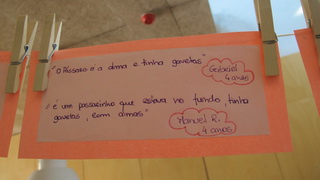 "O Pássaro é a alma e tinha gavetas"
Gabriel
4 anos
"é um passarinho que estava no fundo, tinha
gavetas, eram dimais"
Manuel R.
4 anos